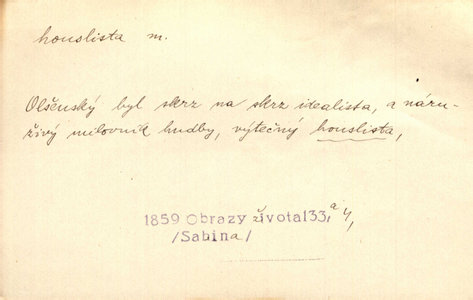 houslista m.
Olšenský byl skrz na skrz idealista, a náru-
živý milovník hudby, výtečný houslista,
1859 Obrazy života133, a 4,
/Sabina/